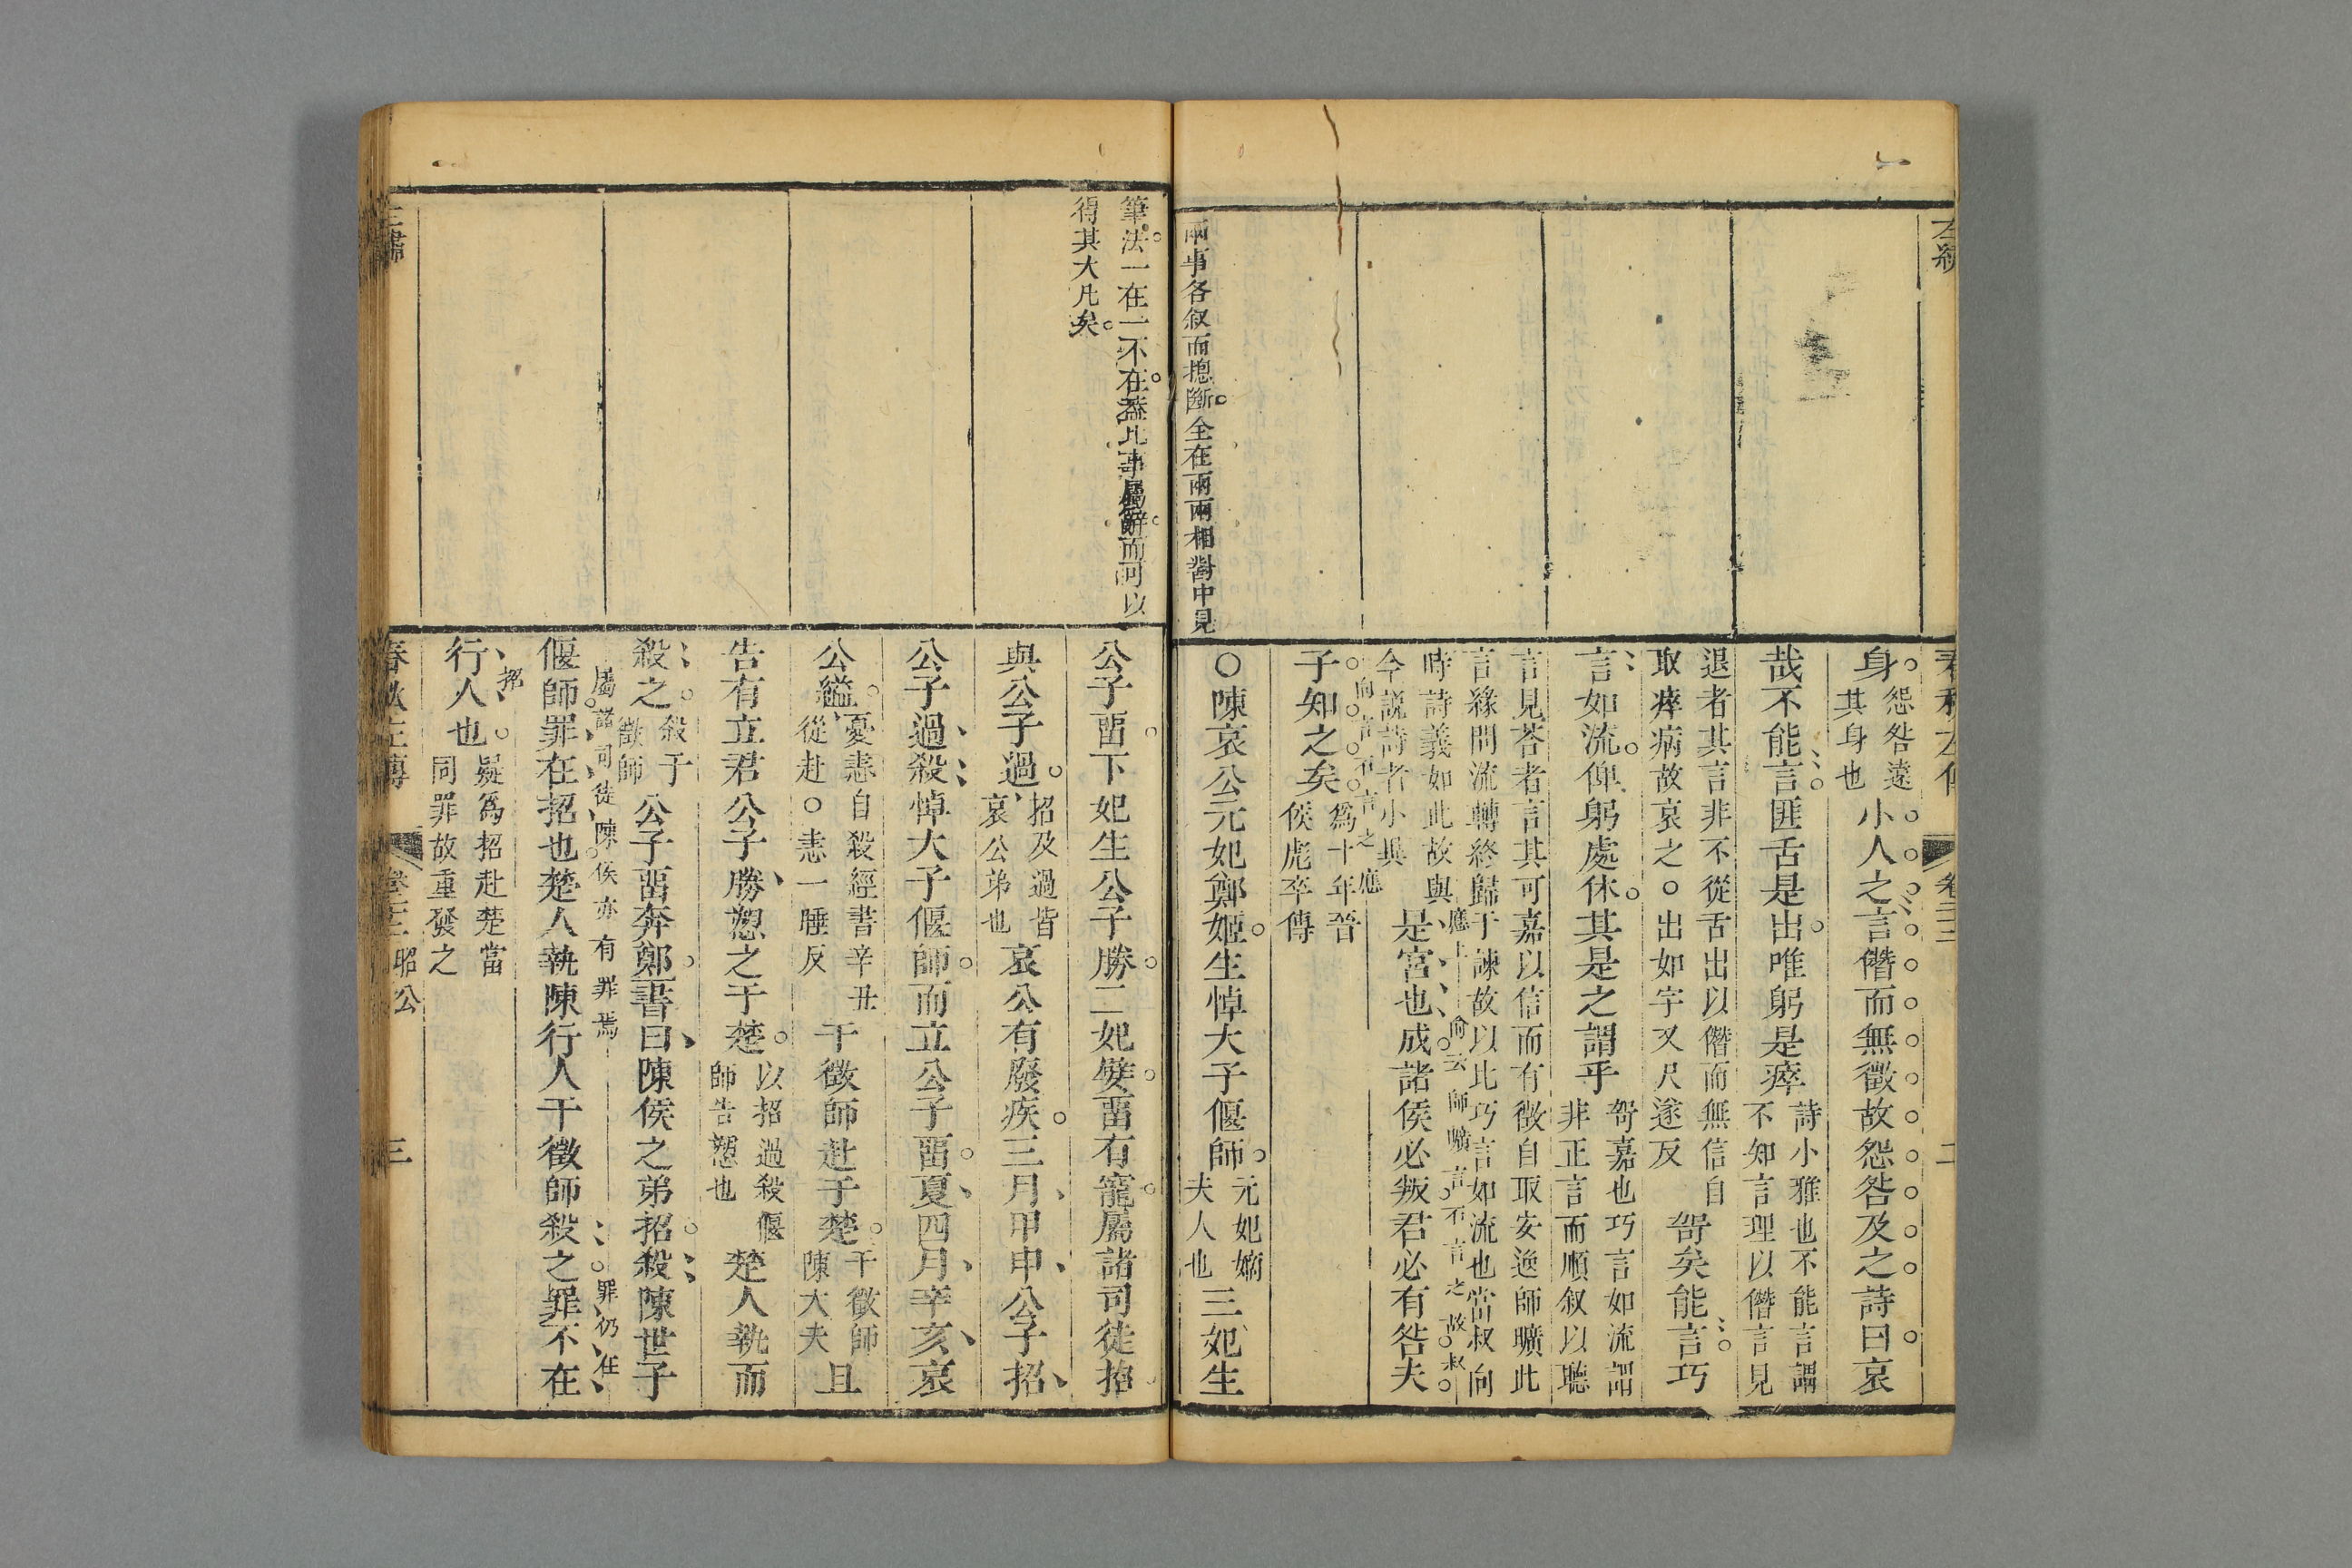 身怨咎遠其身也小人之言僭而無徵故怨咎及之詩曰哀
哉不能言匪舌是出唯躬是瘁詩小雅也不能言謂不知言理以僭言見
退者其言非不從舌出以僭而無信自取瘁病故哀之○出如字又尺遂反哿矣能言巧
言如流俾躬處休其是之謂乎哿嘉也巧言如流謂非正言而順叙以聽
言見荅者言其可嘉以信而有徵自取安逸師曠此
言緣問流轉終歸于諫故以比巧言如流也當叔向
時詩義如此故與今説詩者小異是宮也成諸侯必叛君必有咎夫
應上
向云師曠言不言之故叔
向言不言之應
子知之矣爲十年晉侯彪卒傳
○陳哀公元妃鄭姬生悼大子偃師元妃嫡夫人也二妃生
兩事各叙而揔斷全在兩兩相對中見
卷二十二
二
筆法一在一不在葢比事屬辭而可以
得其大凡矣
公子畱下妃生公子勝二妃嬖畱有寵屬諸司徒招
與公子過招及過皆哀公弟也哀公有廢疾三月甲申公子招
公子過殺悼大子偃師而立公子畱夏四月辛亥哀
公縊憂恚自殺經書辛丑從赴○恚一睡反干徵師赴于楚干徵師陳大夫且
告有立君公子勝愬之于楚以招過殺偃師告愬也楚人執而
殺之殺干徵師公子畱奔鄭書曰陳侯之弟招殺陳世子
屬諸司徒陳侯亦有罪焉
偃師罪在招也楚人執陳行人干徵師殺之罪不在
罪仍在
招
行人也疑爲招赴楚當同罪故重發之
春秋左傳
昭公
三